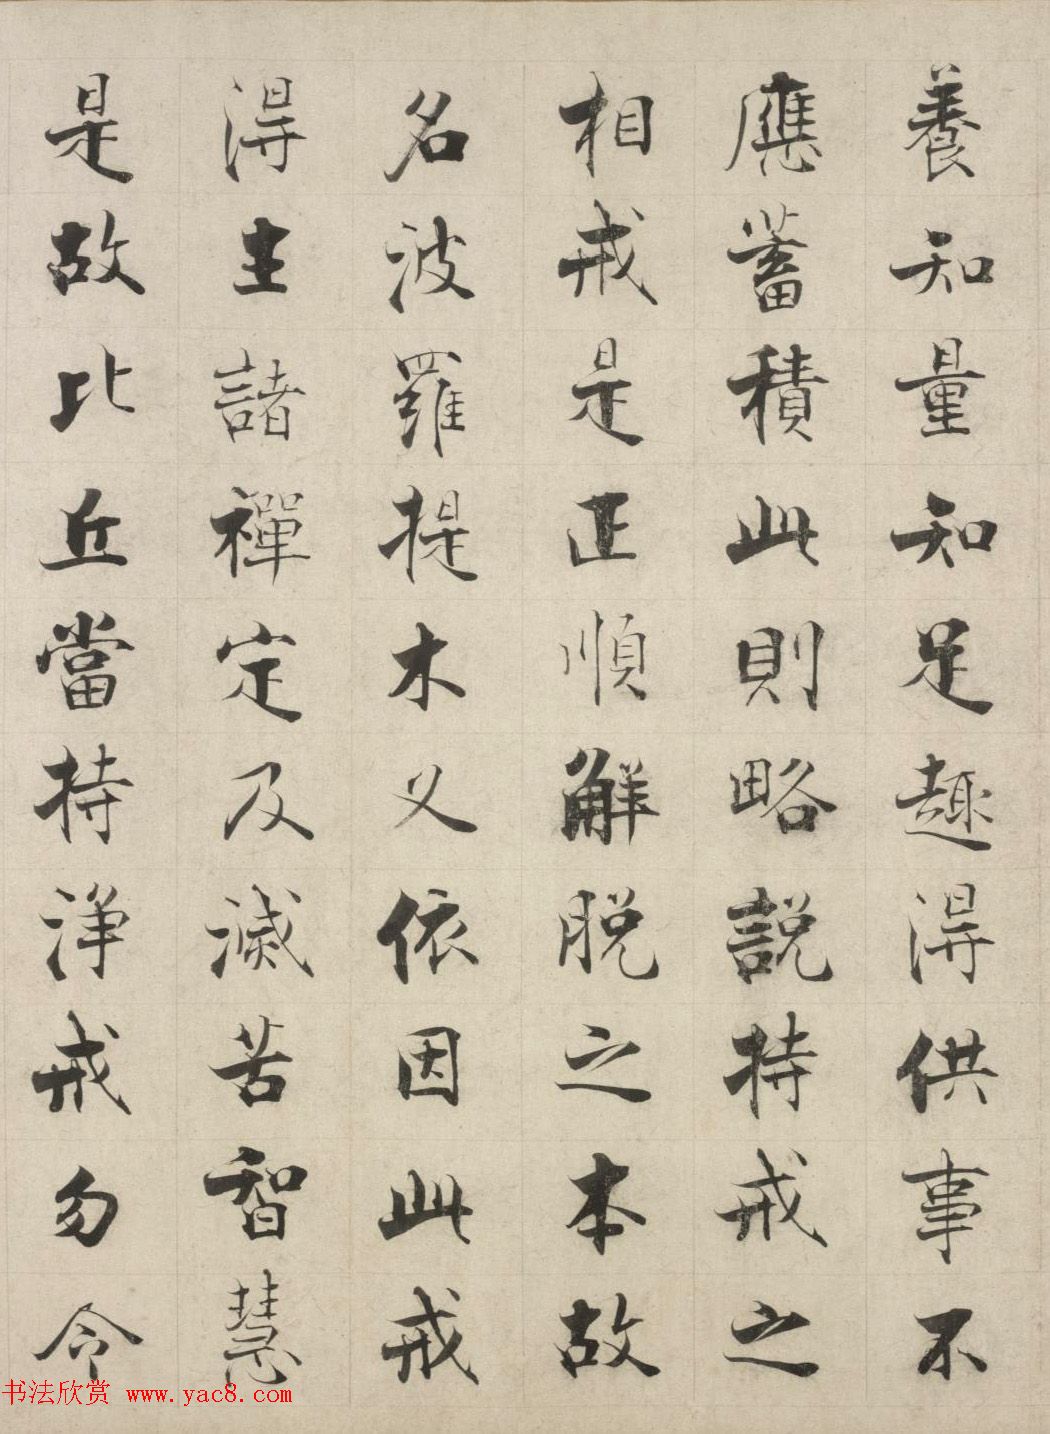 養知量知足趣得供事不
應蓄積此則略說持戒之
相戒是正順解脫之本故
名波羅提木义依因此戒
得主諸禪定及滅苦智慧
是故比丘當持淨戒勿令
书法欣赏 www.yac8.com